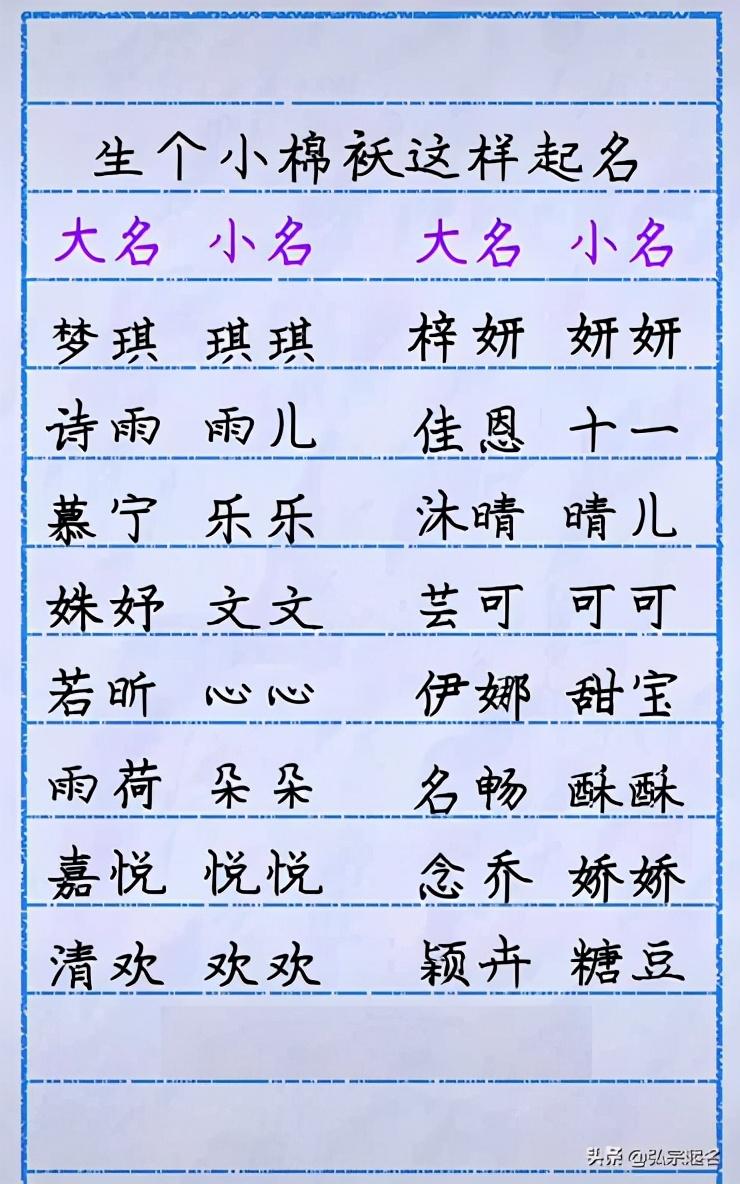 生个小棉袄这样起名
大名 小名 大名 小名
梦琪 琪琪 梓妍 妍妍
诗雨 雨儿 佳恩 十一
慕宁 乐乐 沐晴 晴儿
姝妤 文文 芸可 可可
若昕 心心 伊娜 甜宝
雨荷 朵朵 名畅 酥酥
嘉悦 悦悦 念乔 娇娇
清欢 欢欢 颖卉 糖豆
头条 @弘宗起名